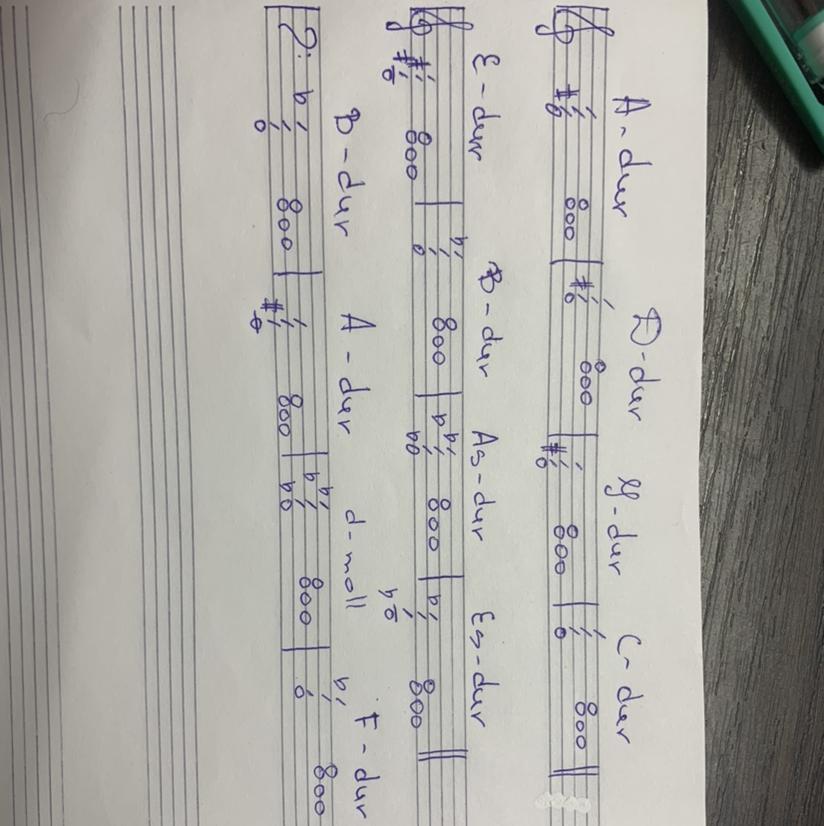 A-dur D-dur G-dur C-dur
E-dur B-dur As-dur Es-dur
B-dur A-dur d-moll F-dur